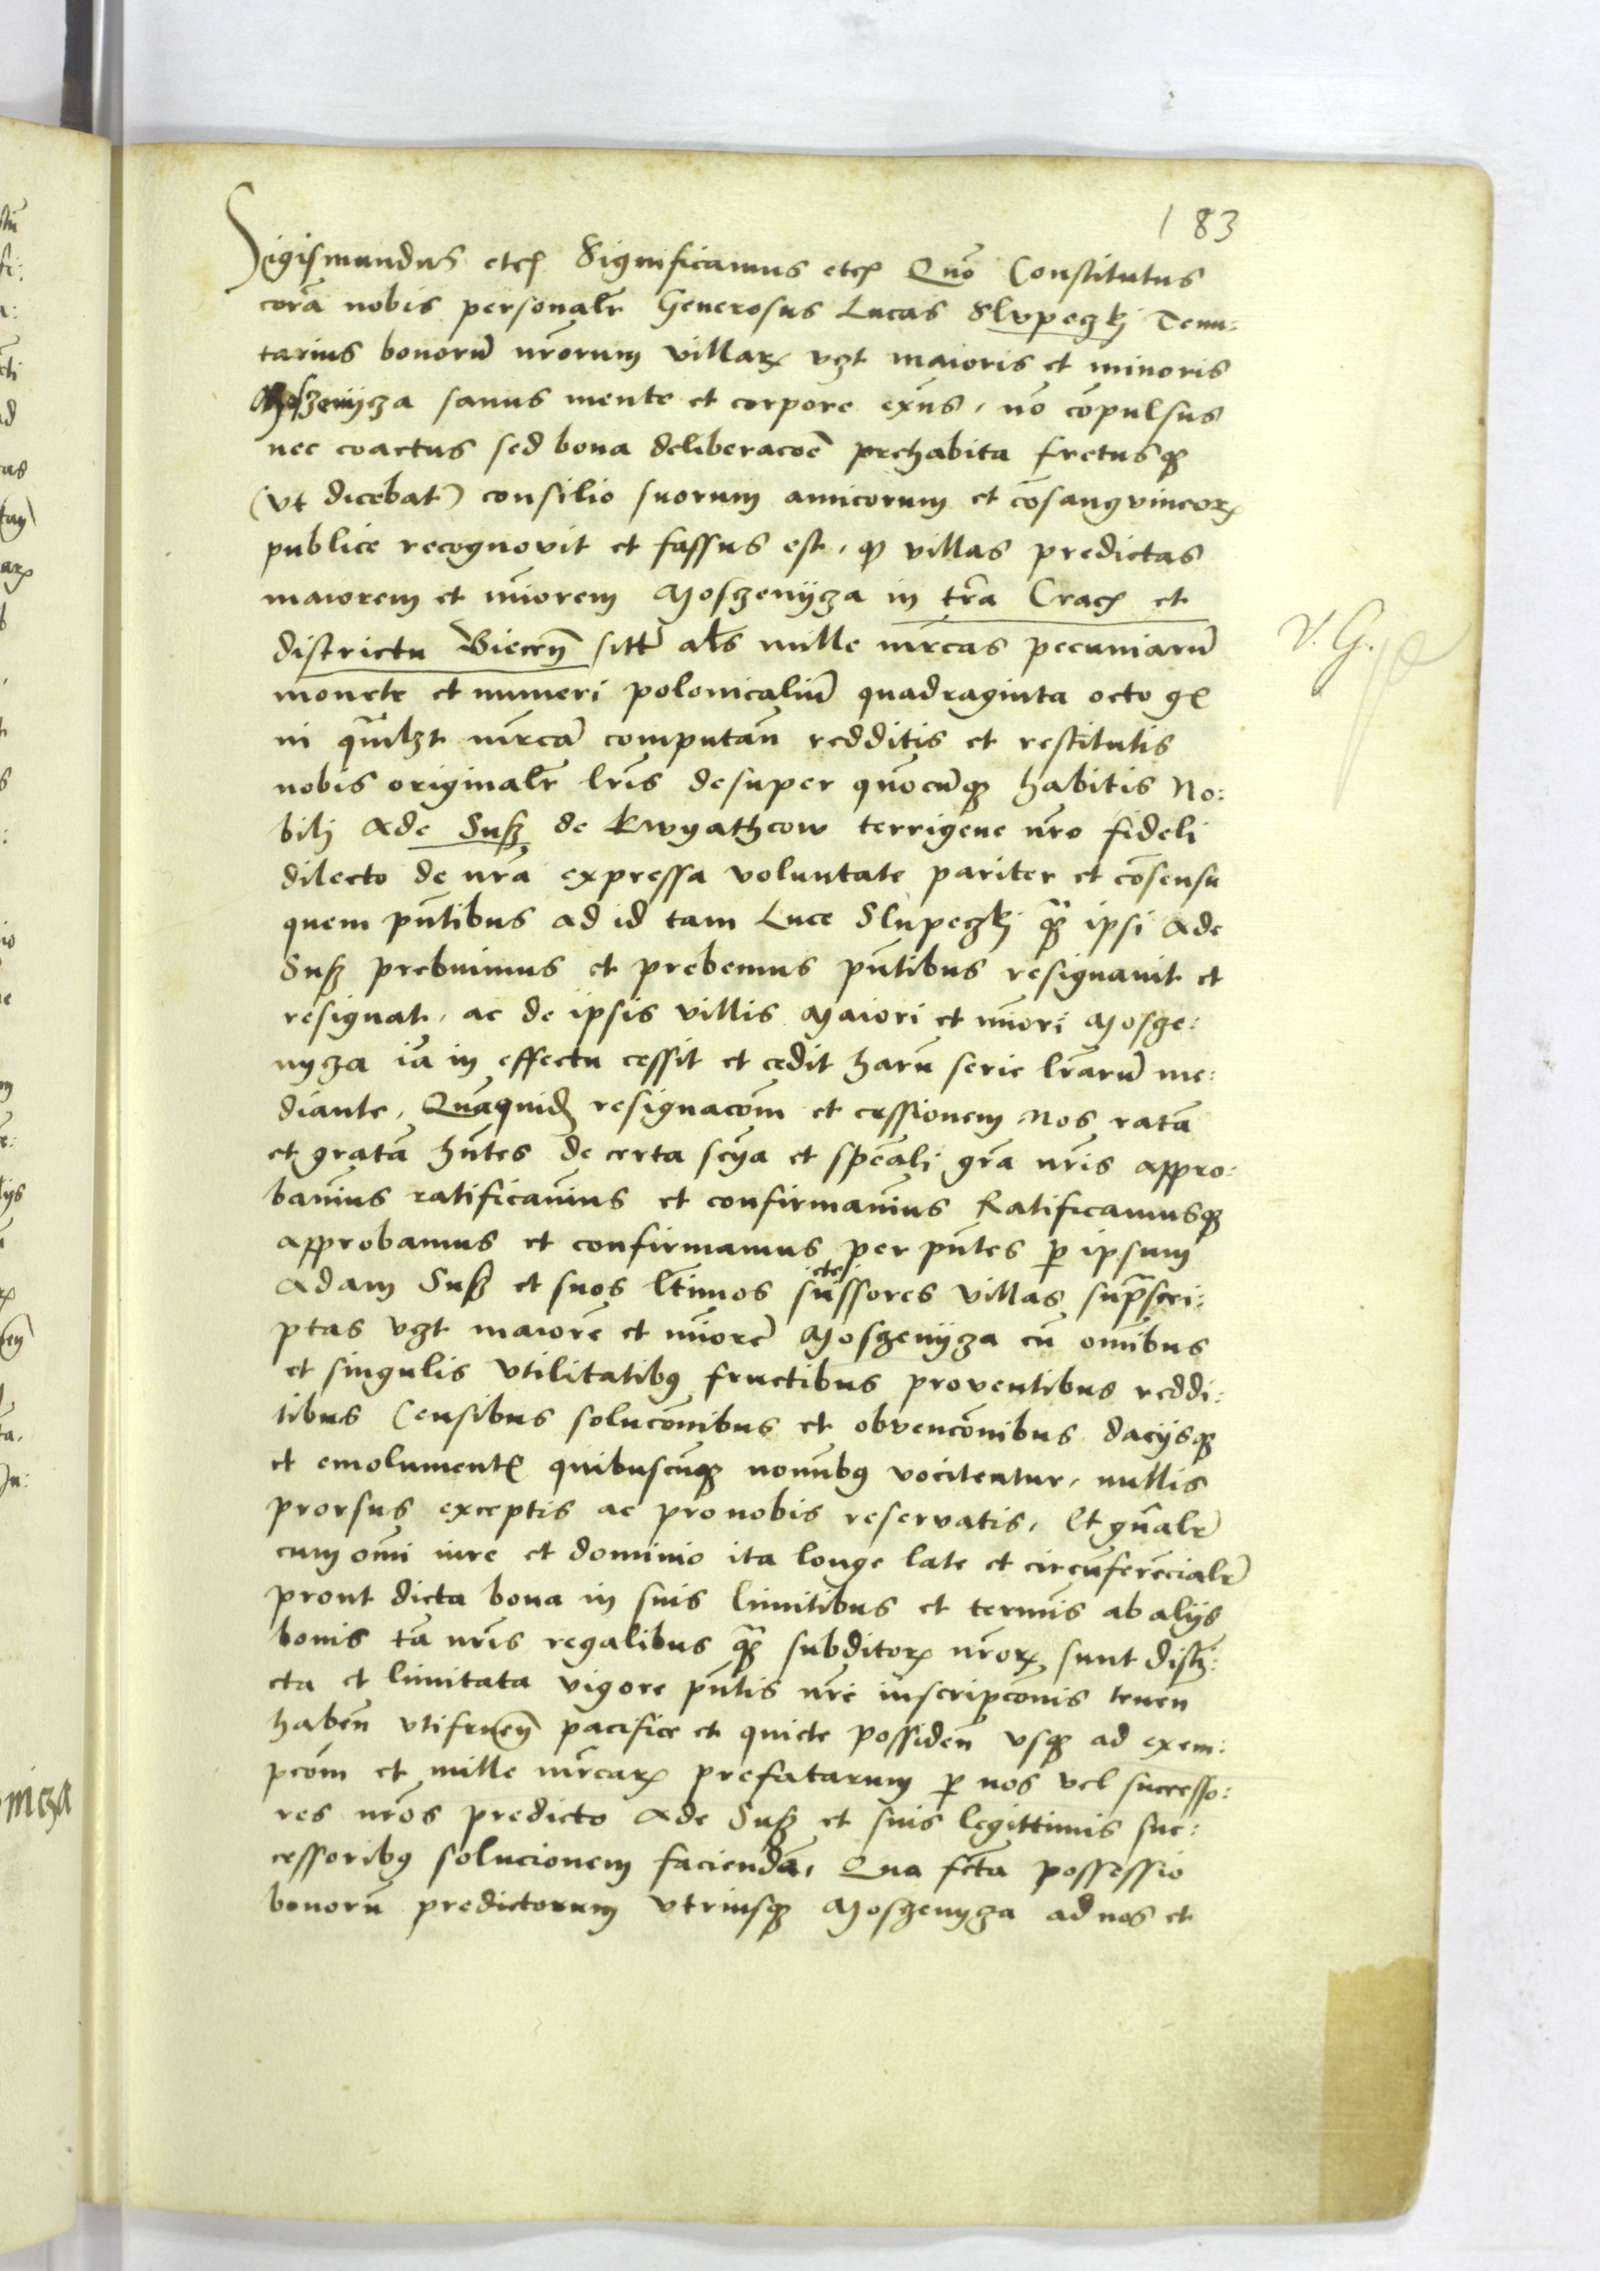 183
Sigismundus etc̃ Significamus etc̃ Quo͞ Constitutus
cora͞ nobis personalr̃ Generosus Lucas Slupeczkj Tenu:
tarius bonoru͞ nr̃orum villaꝝ vzt maioris et minoris
Moszenycza sanus mente et corpore exñs, no͞ co͞pulsus
nec coactus sed bona deliberaco͞e prehabita fretusqꝫ
(vt dicebat) consilio suorum amicorum et co͞sangvineoꝝ
publice recognovit et fassus est, qꝫ villas predictas
maiorem et mi͞orem Moszenyza in tr̃a Crac̃ et
districtu Biecen͞ sitt͞ als̃ mille mr̃cas pecuniaru͞
monete et numeri polonicaliu͞ quadraginta octo gꝭ
in qua͞lzt mr̃ca͞ computan͞ redditis et restitutis
nobis originalr̃ lr̃is desuper quo͞cu͞qꝫ habitis No:
bilj Ade Susz de Kwyathcow terrigene nr̃o fideli
dilecto de nr̃a expressa voluntate pariter et co͞sensu
quem pn͞tibus ad id tam Luce Slupeczkj qꝫ͞ ipsi Ade
Susz prebuimus et prebemus pn͞tibus resignavit et
resignat, ac de ipsis villis Maiori et mi͞ori Mosze:
nyza ia͞ in effectu cessit et cedit haru͞ serie lr̃aru͞ me:
diante, Qua͞quidẽ resignaco͞m et cessionem Nos rata͞
et grata͞ hn͞tes de certa scy͞a et spe͞ali gr̃a nr̃is appro:
bavimus ratificavimus et confirmavimus Ratificamusqꝫ
approbamus et confirmamus per pn͞tes ꝑ ipsum
Adam Susz et suos lt͞imos suc͞cessores villas supra͞scri:
ptas vzt maiore͞ et mi͞ore͞ Moszenyza cu͞ om͞ibus
et singulis vtilitatibꝫ fructibus proventibus reddi:
tibus Censibus soluco͞nibus et obvenco͞nibus dacysqꝫ
et emolumentꝭ quibuscu͞qꝫ no͞mi͞bꝫ vocitentur, nullis
prorsus exceptis ac pro nobis reservatis, Et gn͞alr̃
cum om͞i iure et dominio ita longe late et circu͞fere͞cialr̃
prout dicta bona in suis limitibus et termi͞s ab alijs
bonis ta͞ nr̃is regalibus qꝫ͞ subditoꝝ nr̃oꝝ sunt disti͞:
cta et limitata vigore pn͞tis nr̃e inscripco͞nis tenen͞
haben͞ vtifruen͞ pacifice et quiete possiden͞ vsqꝫ ad exem:
pco͞m et mille mr̃caꝝ prefatarum ꝑ nos vel successo:
res nr̃os predicto Ade Susz et suis legittimis suc:
cessoribꝫ solucionem facienda͞, Qua fc͞ta possessio
bonoru͞ predictorum vtriusqꝫ Moszenyza ad nos et
V. G.